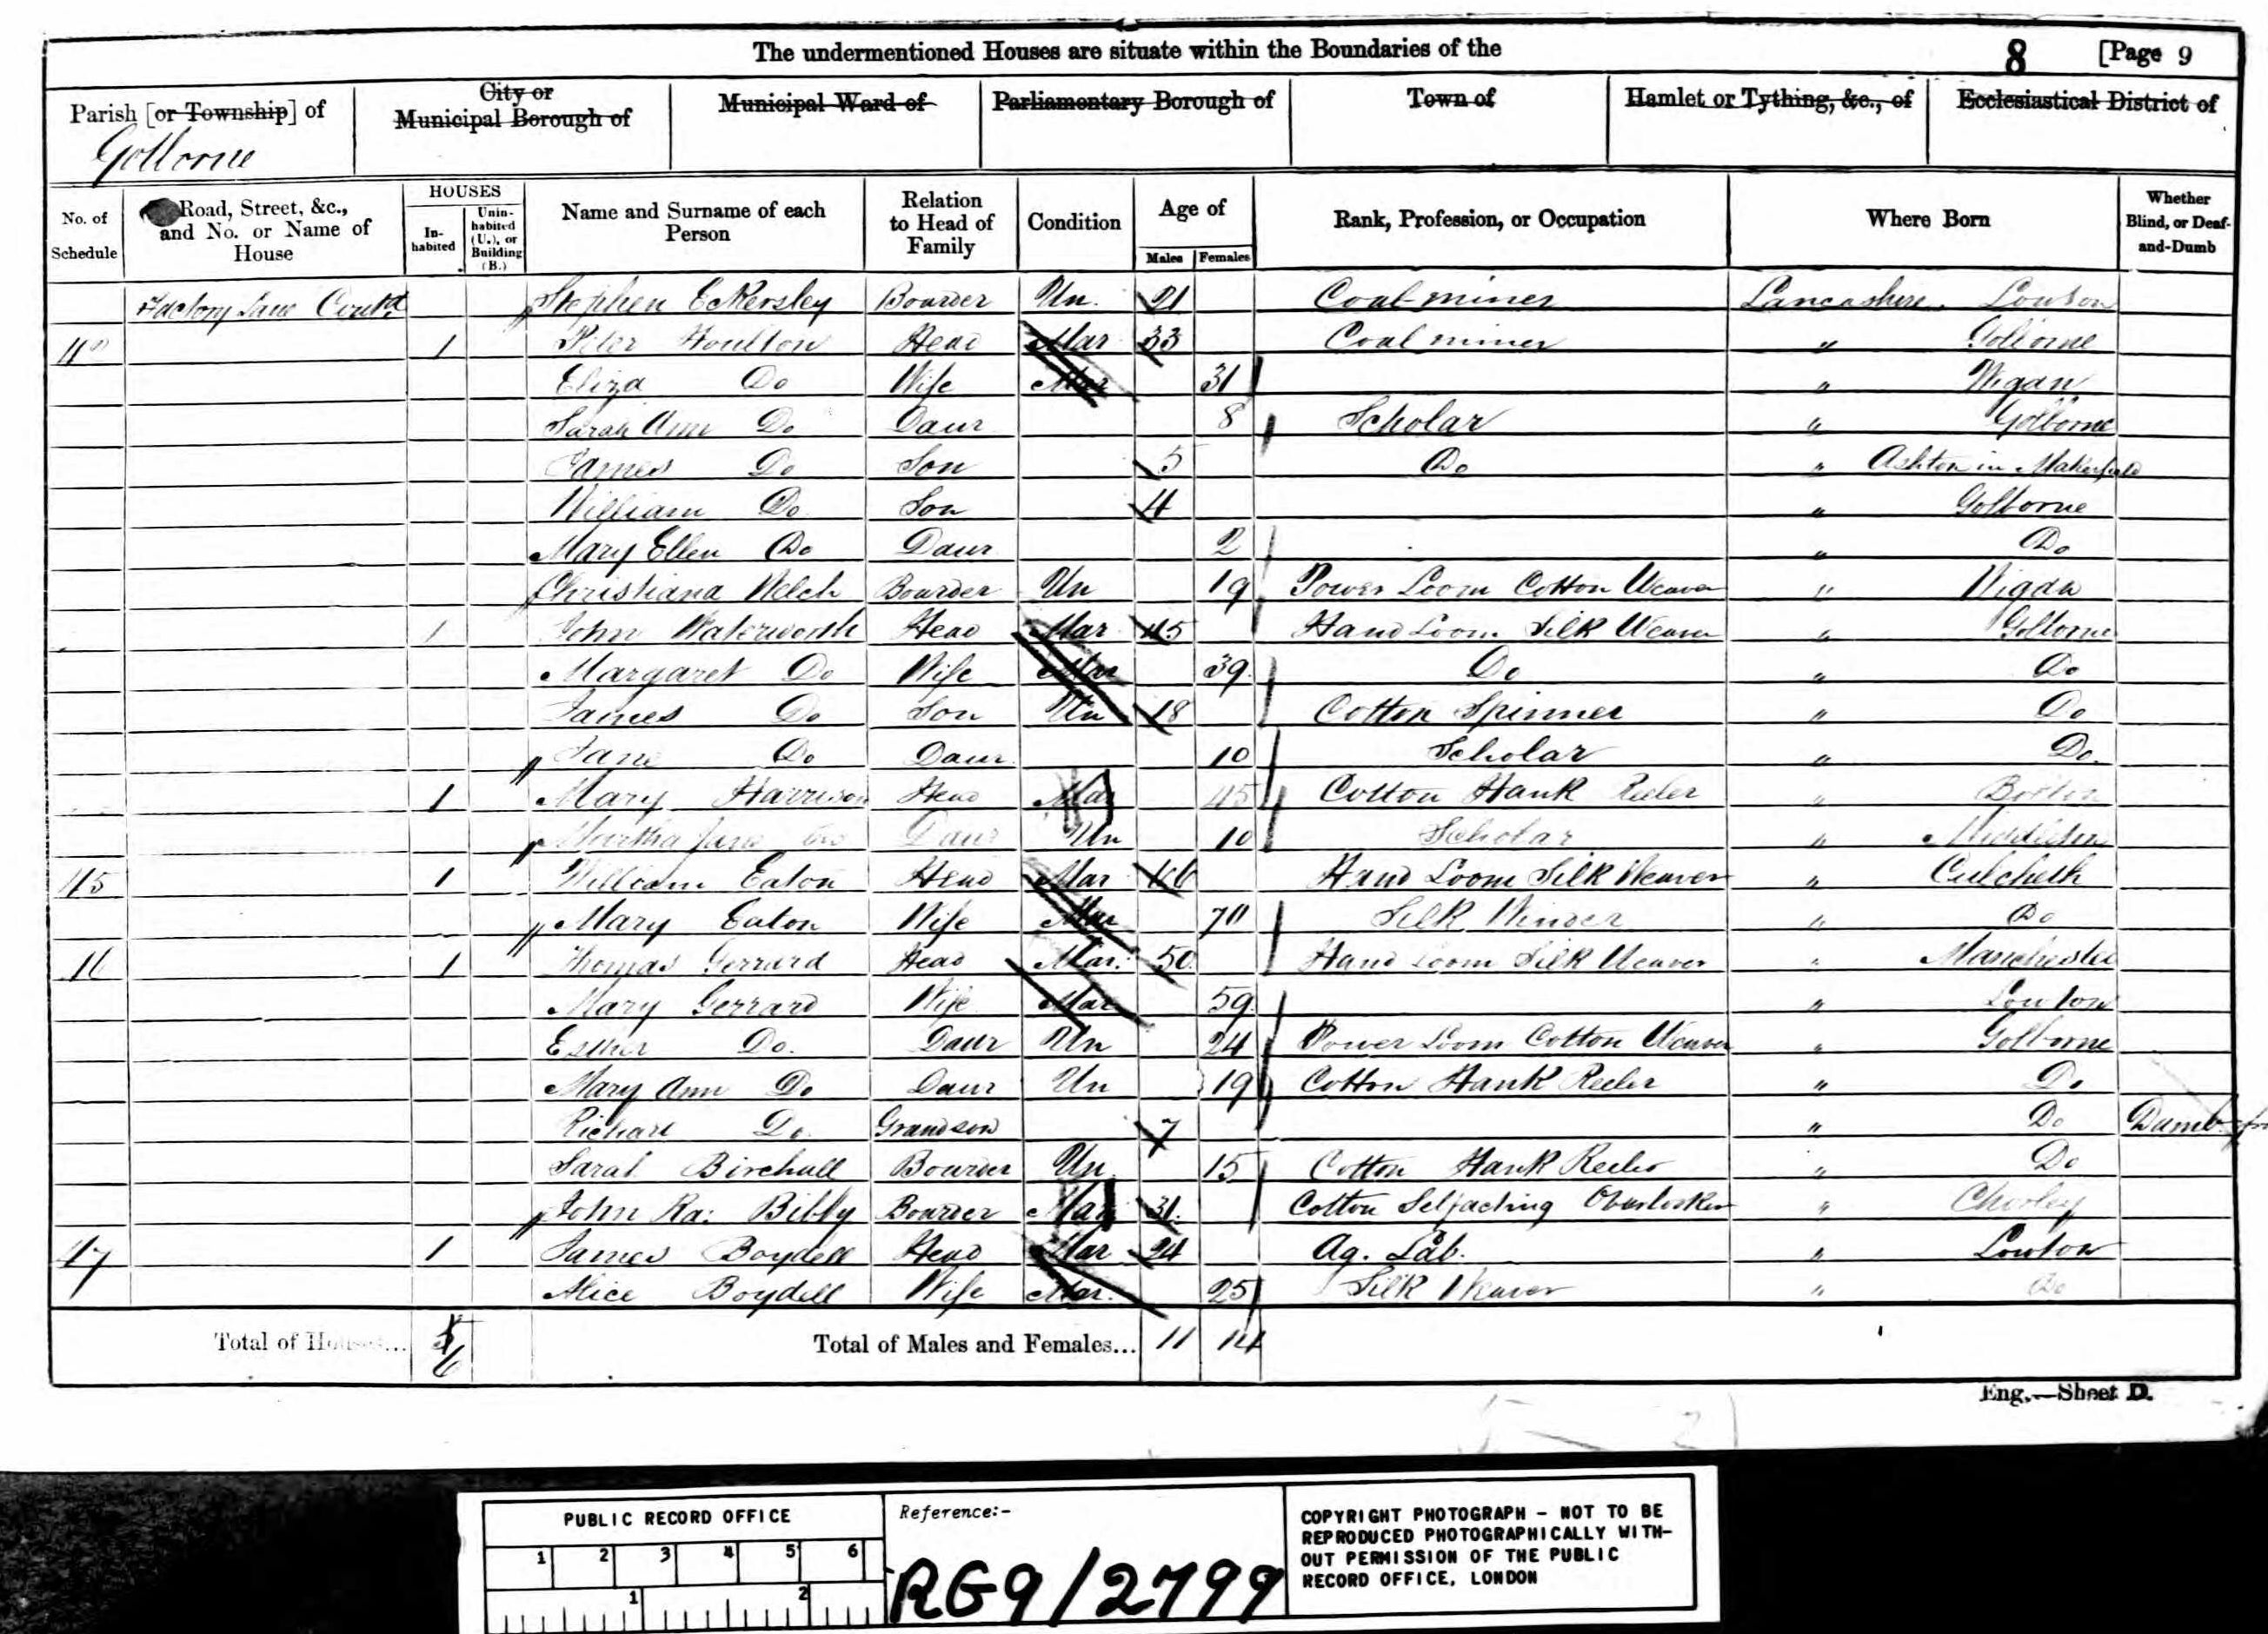 The undermentioned Houses are situate within the Boundaries of the 8 [Page 9
Parish [or Township] of City or Municipal Borough of Municipal Ward of Parliamentary Borough of Town of Hamlet or Tything, &c., of Ecclesiastical District of
Golborne
No. of Schedule Road, Street, &c., and No. or Name of House HOUSES Inhabited Uninhabited (U.), or Building (B.) Name and Surname of each Person Relation to Head of Family Condition Age of Males Females Rank, Profession, or Occupation Where Born Whether Blind, or Deaf-and-Dumb
Factory Lane Contd Stephen Eckersley Boarder Un. 21 Coal miner Lancashire. Lowton
1 Peter Houlton Head Mar 33 Coal miner " Golborne
Eliza Do Wife Mar 31 " Wigan
Sarah Ann Do Daur 8 Scholar " Golborne
James Do Son 5 Do " Ashton in Makerfield
William Do Son 4 " Golborne
Mary Ellen Do Daur 2 " Do
Christiana Welch Boarder Un 19 Power Loom Cotton Weaver " Wigan
1 John Waterworth Head Mar 45 Hand Loom Silk Weaver " Golborne
Margaret Do Wife Mar 39 Do " Do
James Do Son Un 18 Cotton Spinner " Do
Jane Do Daur 10 Scholar " Do.
1 Mary Harrison Head Mar 45 Cotton Hank Reeler " Bolton
Martha Jane Do Daur Un 10 Scholar " Middleton
45 1 William Eaton Head Mar Hand Loom Silk Weaver " Culcheth
Mary Eaton Wife Mar 70 Silk Winder " Do
46 1 Thomas Gerrard Head Mar. 50 Hand Loom Silk Weaver " Manchester
Mary Gerrard Wife Mar 59 " Lowton
Esther Do. Daur Un 24 Power Loom Cotton Weaver " Golborne
Mary Ann Do Daur Un 19 Cotton Hank Reeler " Do
Richard Do Grandson 7 " Do Dumb
Sarah Birchall Boarder Un 15 Cotton Hank Reeler " Do
John Ra: Bibby Boarder Mar 31 Cotton Selfacting Overlooker " Chorley
47 1 James Boydell Head Mar 24 Ag. Lab. " Lowton
Alice Boydell Wife Mar. 25 Silk Weaver " Do
Total of Houses... 6 Total of Males and Females... 11 14
Eng.—Sheet D.
PUBLIC RECORD OFFICE
1 2 3 4 5 6
1 2
Reference:-
RG9/2799
COPYRIGHT PHOTOGRAPH – NOT TO BE
REPRODUCED PHOTOGRAPHICALLY WITH-
OUT PERMISSION OF THE PUBLIC
RECORD OFFICE, LONDON